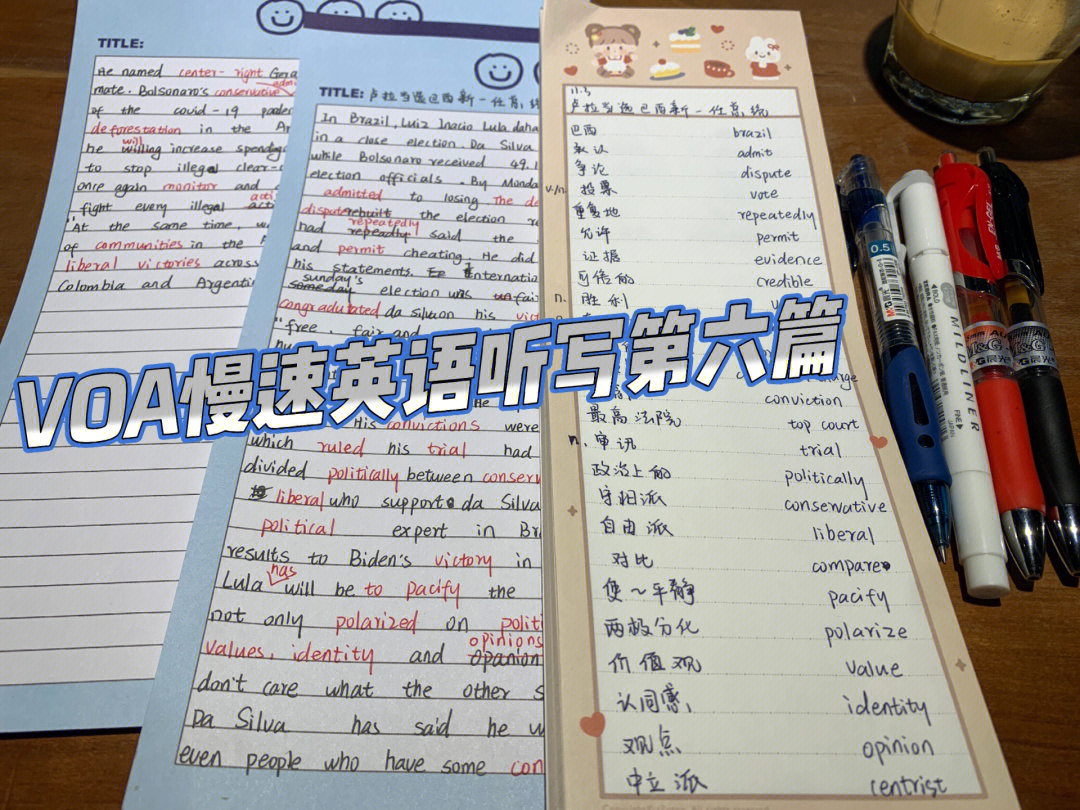 TITLE:
He named center-right Gera
mate. Bolsonaro's conservative
of the covid-19 pande
deforestation in the Am
will
he willing increase spending
to stop illegal clear-
once again monitor and
fight every illegal
"At the same time, w
of communities in the A
liberal victories across
Colombia and Argentin
TITLE: 卢拉当选巴西新一任总统
In Brazil, Luiz Inacio Lula daha
in a close election. Da Silva
while Bolsonaro received 49.1
election officials. By Monda
admitted to losing The de
dispute rebuilt the election re
repeatedly
had repeadly said the
and permit cheating. He did
his statements. internatio
sunday's
someday election was unfair
congradutated da silva on his vict
"free, fair and
VOA慢速英语听写第六篇
His convictions were
which ruled his trial had
divided politically between conserv
liberal who support da Silva
political expert in Br
results to Biden's victory in
has
Lula will be to pacify the
not only polarized on polit
opinions
values, identity and opanion
don't care what the other s
Da Silva has said he w
even people who have some con
11.3
卢拉当选巴西新一任总统
巴西 brazil
承认 admit
争论 dispute
v./n. 投票 vote
重复地 repeatedly
允许 permit
证据 evidence
可信的 credible
n. 胜利
conviction
最高法院 top court
n. 审讯 trial
政治上的 politically
守旧派 conservative
自由派 liberal
对比 compare
使~平静 pacify
两极分化 polarize
价值观 value
认同感 identity
观点 opinion
中立派 centrist
0.5
M&G
MILDLINER
M&G晨光